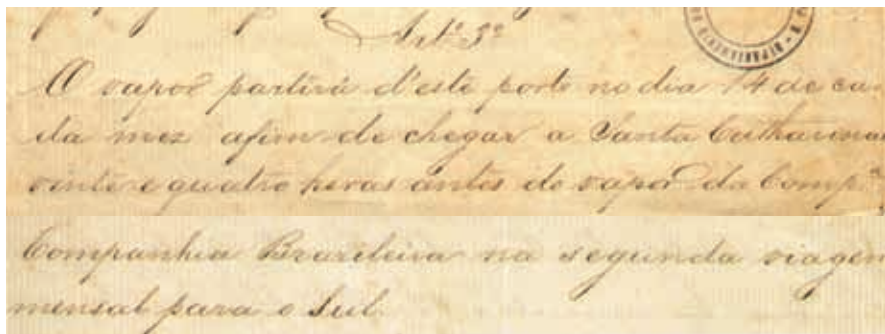 Art.º 3º
O vapor partirá d'este porto no dia 14 de ca-
da mez afim de chegar a Santa Catharina
vinte e quatro horas antes do vapor da Comp.ª
Companhia Brazileira na segunda viagem
mensal para o Sul.
DEPARTAMENTO